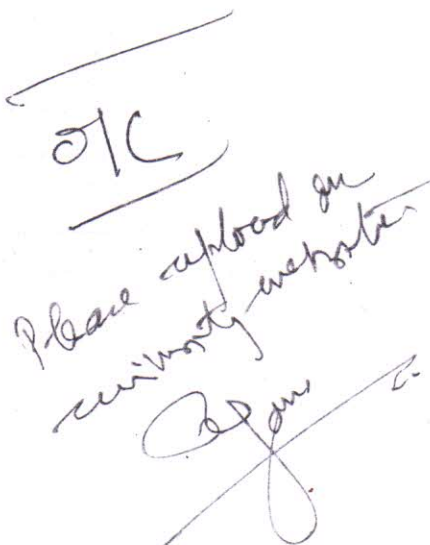 O/C
Please upload on
university website